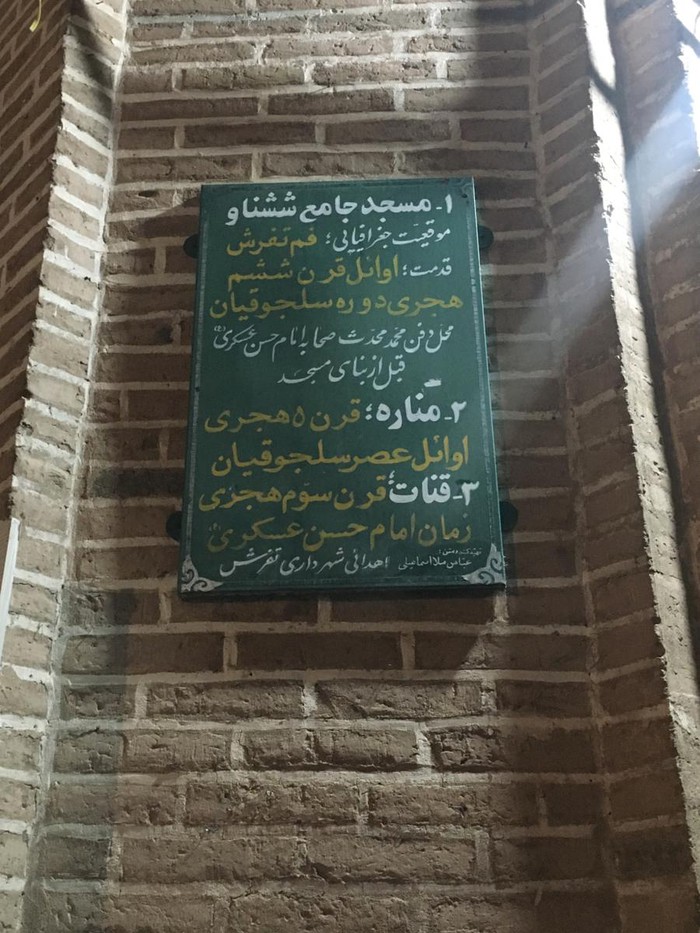 ۱- مسجد جامع ششناو
موقعیت جغرافیایی: فم تفرش
قدمت: اوائل قرن ششم
هجری دوره سلجوقیان
محل دفن محمد محدث صحابه امام حسن عسکری (ع)
قبل از بنای مسجد
۲- مناره: قرن ۵ هجری
اوائل عصر سلجوقیان
۳- قنات: قرن سوم هجری
زمان امام حسن عسکری (ع)
تهیه کننده متن:
عباس ملا اسماعیلی اهدائی شهرداری تفرش